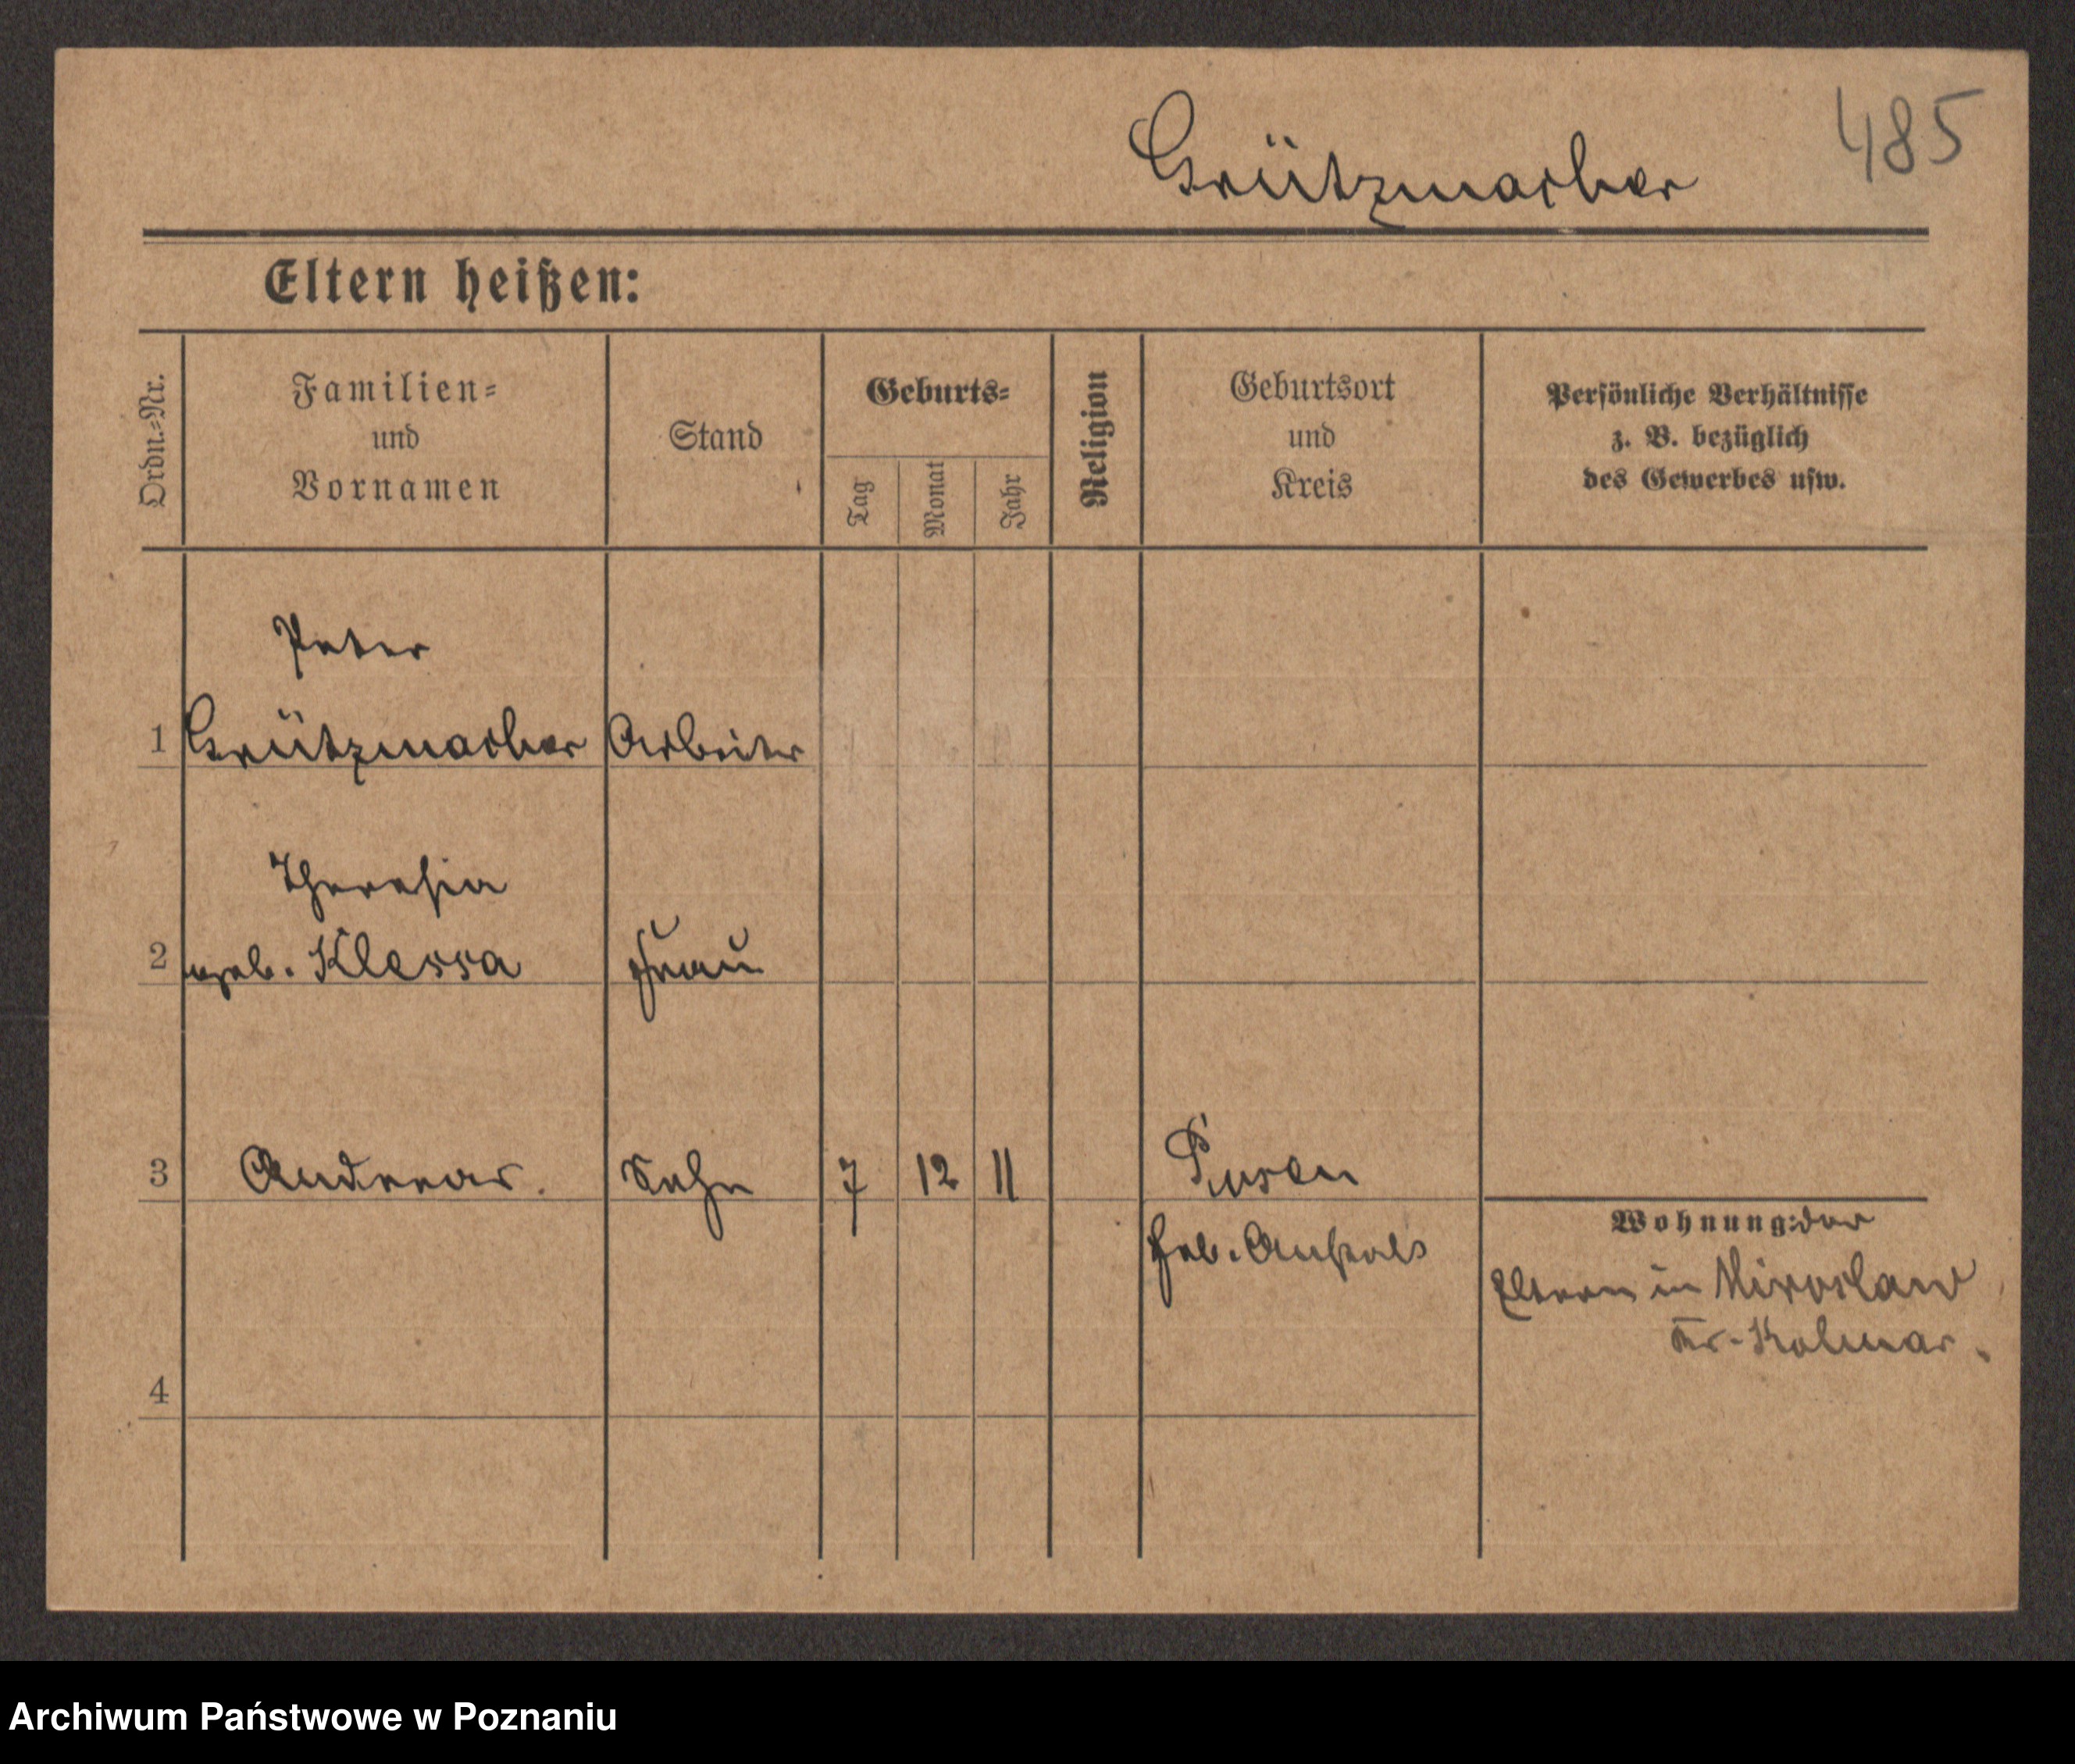 485
Grützmacher
Eltern heißen:
Ordn.-Nr.
Familien-
und
Vornamen
Stand
Geburts-
Tag
Monat
Jahr
Religion
Geburtsort
und
Kreis
Persönliche Verhältnisse
z. B. bezüglich
des Gewerbes usw.
Peter
1 Grützmacher Arbeiter
Theresia
2 geb. Klessa Frau
3 Andreas. Sohn 7 12 11 Posen
Wohnung: der
Heb. Anstalt
Eltern in Miroslaw
Kr. Kolmar.
4
Archiwum Państwowe w Poznaniu